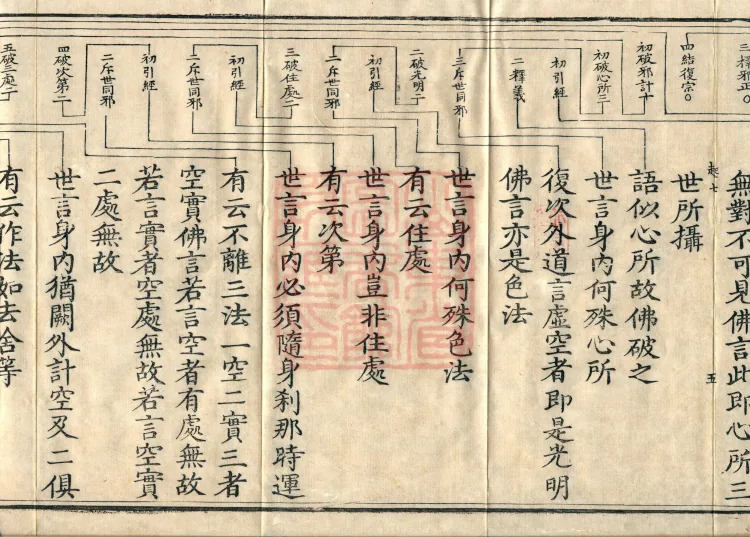 三釋邪正〇
四結復宗〇
初破邪計十
初破心所三
初引經
二釋義
三斥世同邪
二破光明二
初引經
二斥世同邪
三破住處二
初引經
二斥世同邪
初引經
二斥世同邪
四破次第二
五破三處二
無對不可見佛言此即心所三
起七
五
世所攝
語似心所故佛破之
世言身內何殊心所
復次外道言虛空者即是光明
佛言亦是色法
世言身內何殊色法
有云住處
世言身內豈非住處
有云次第
世言身內必須隨身剎那時運
有云不離三法一空二實三者
空實佛言若言空者有處無故
若言實者空處無故若言空實
二處無故
世言身內猶闕外計空及二俱
有云作法如去舍等